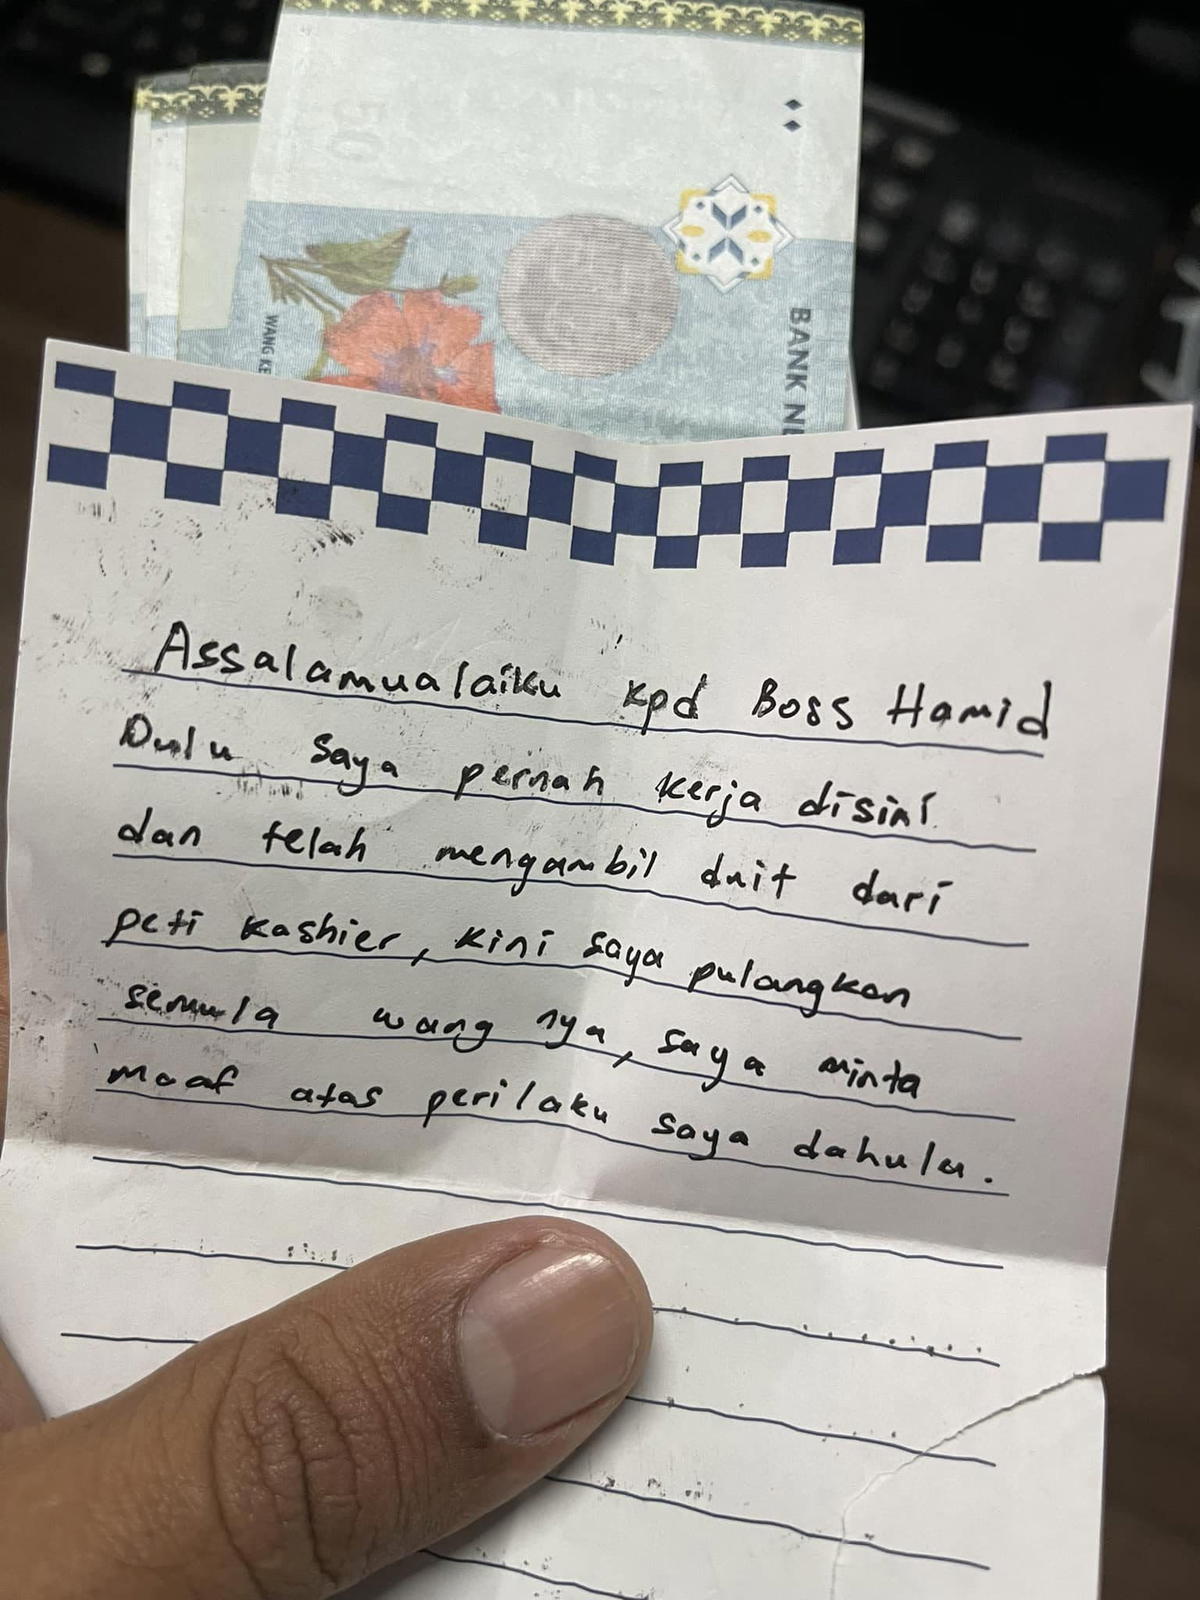 50
BANK NE
WANG KE
Assalamualaiku kpd Boss Hamid
Dulu saya pernah kerja disini
dan telah mengambil duit dari
peti kashier, kini saya pulangkan
semula wang nya, saya minta
maaf atas perilaku saya dahulu.